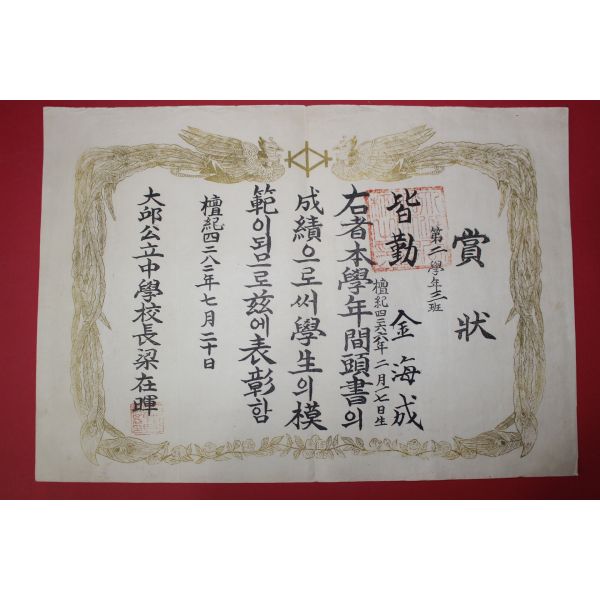 賞狀
第二學年三班
金海成
檀紀四二六六年二月二七日生
皆勤
右者本學年間頭書의
成績으로써學生의模
範이됨으로玆에表彰함
檀紀四二八二年七月二十日
大邱公立中學校長梁在暉